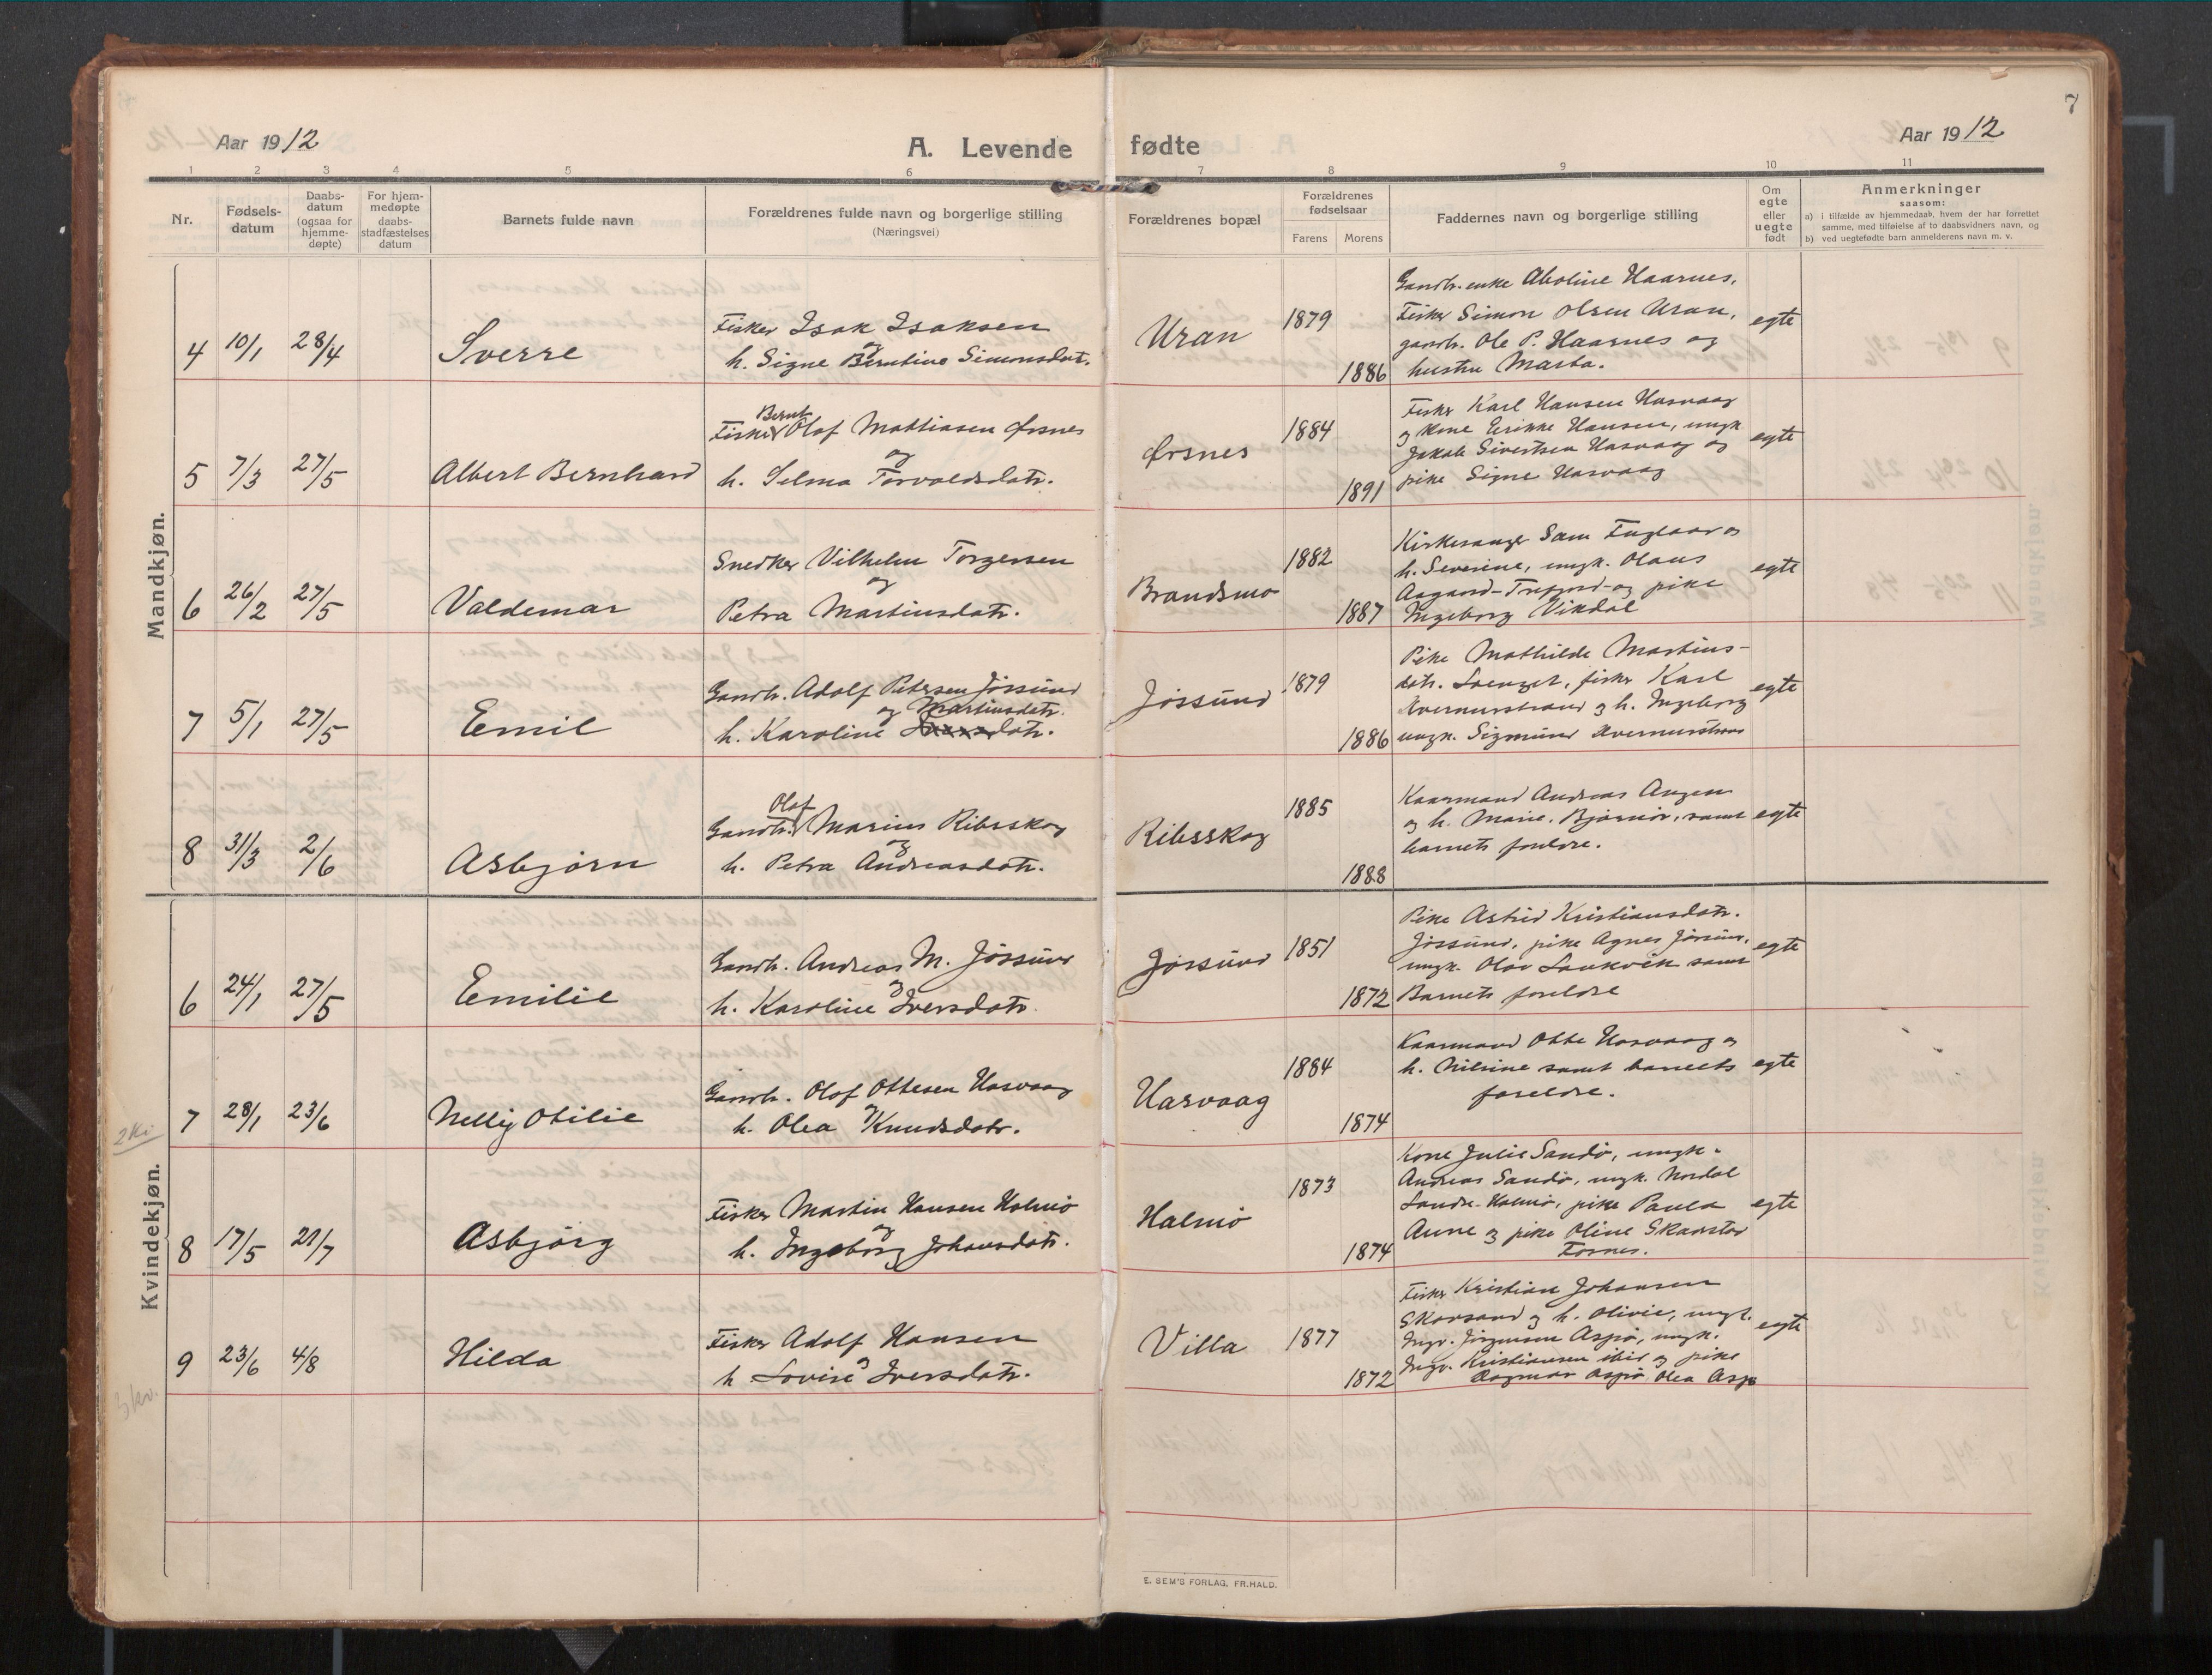 7
Aar 1912
A. Levende fødte
Aar 1912
1 2 3 4 5 6 7 8 9 10 11
Nr.
Fødsels-
datum
Daabs-
datum
(ogsaa for
hjemme-
døpte)
For hjem-
medøpte
daabs-
stadfæstelses
datum
Barnets fulde navn
Forældrenes fulde navn og borgerlige stilling
(Næringsvei)
Forældrenes bopæl
Forældrenes
fødselsaar
Farens
Morens
Faddernes navn og borgerlige stilling
Om
egte
eller
uegte
født
Anmerkninger
saasom:
a) i tilfælde av hjemmedaab, hvem der har forrettet
samme, med tilføielse af to daabsvidners navn, og
b) ved uegtefødte barn anmelderens navn m. v.
Mandkjøn.
4 10/1 28/4 Sverre
Fisker Isak Isaksen
og
h. Signe Berntine Simonsdatr.
Uran
1879
1886
Gaardbr. enke Aboline Haarnes,
Fisker Simon Olsen Uran,
gaardbr. Ole P. Haarnes og
hustru Marta.
egte
5 7/3 27/5 Albert Bernhard
Bernt
Fisker Olaf Mattiasen Ørsnes
og
h. Selma Torvaldsdatr.
Ørsnes
1884
1891
Fisker Karl Hansen Hasvaag
og kone Erikke Hansen, ungk.
Jakob Sivertsen Hasvaag og
pike Signe Hasvaag
egte
6 26/2 27/5 Valdemar
Snedker Vilhelm Torgersen
og
Petra Martinsdatr.
Brandsmo
1882
1887
Kirkesanger Sam Fuglaar og
h. Severine, ungk. Olaus
Aagard- og pike
Ingeborg Vikdal
egte
7 5/1 27/5 Emil
Gaardbr. Adolf Petersen Jøssund
og Martinsdatr.
h. Karoline datr.
Jøssund
1879
1886
Pike Mathilde Martins-
datr. fisker Karl
Kvernurstrand og h. Ingeborg
ungk. Sigmund Kvernurstrand
egte
8 31/3 2/6 Asbjørn
Olaf
Gaardbr. Marius Ribsskog
og
h. Petra Andreasdatr.
Ribsskog
1885
1888
Kaarmand Andreas Angen
og h. Marie, Bjørnør, samt
barnets foreldre.
egte
Kvindekjøn.
6 24/1 27/5 Emilie
Gaardbr. Andreas M. Jøssund
og
h. Karoline Iversdatr.
Jøssund
1851
1872
Pike Astrid Kristiansdatr.
Jøssund, pike Agnes Jøssund,
ungk. Olav Laukvik samt
Barnets foreldre
egte
2 kv
7 28/1 23/6 Nellij Otilie
Gaardbr. Olaf Ottesen Hasvaag
og
h. Olea Knudsdatr.
Hasvaag
1884
1874
Kaarmand Otte Hasvaag og
h. Nilsine samt barnets
foreldre.
egte
8 17/5 21/7 Asbjørg
Fisker Martin Hansen Halmø
og
h. Ingeborg Johansdatr.
Halmø
1873
1874
Kone Julie Sandø, ungk.
Andreas Sandø, ungk. Nordal
Halmø, pike Paula
Aune og pike Oline Skarstad
Fosnes.
egte
9 23/6 4/8 Hilda
Fisker Adolf Hansen
og
h. Lovise Iversdatr.
Villa
1877
1872
Fisker Kristian Johansen
Skorsand og h. Olivie, ungk.
Ingv. Jørgensen Aspø, ungk.
Ingv. Kristiansen ibid og pike
Dagmar Aspø, Olea Aspø
egte
3 kv.
E. SEM'S FORLAG, FR.HALD.